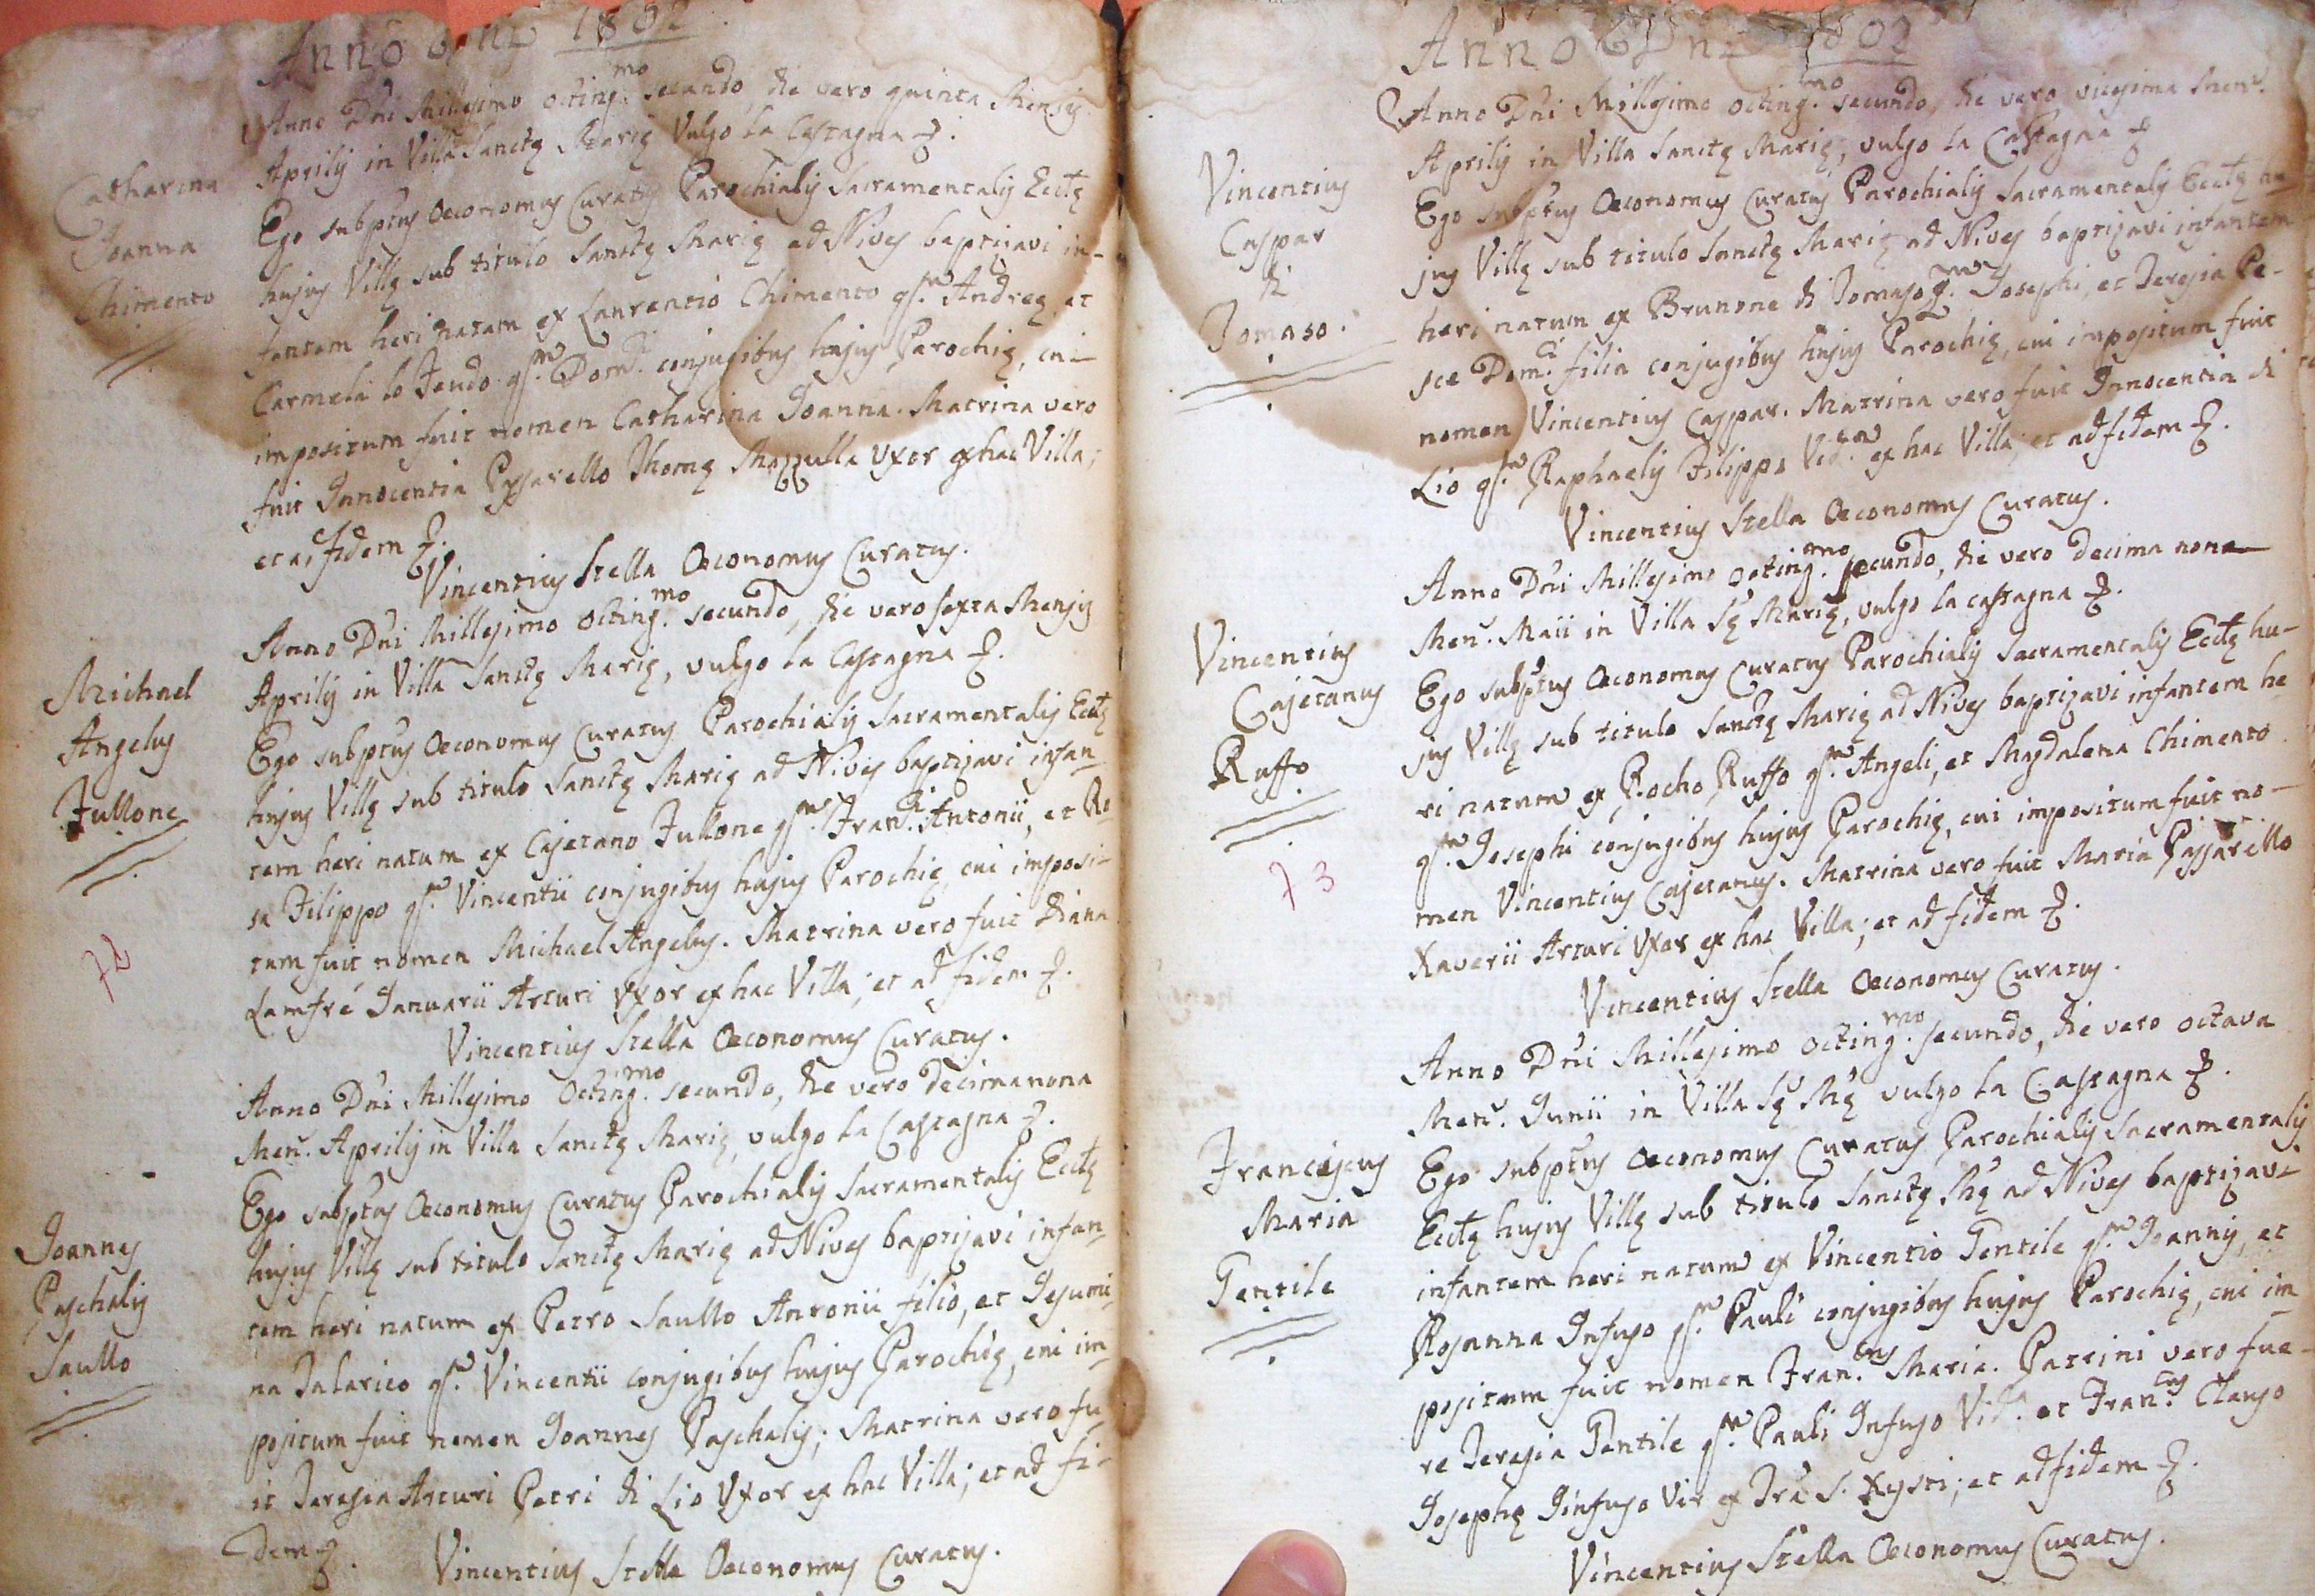 Anno Dni 1802
Catharina
Joanna
Chimento
Anno Dñi Millesimo octing.mo secundo, die vero quinta Mensis
Aprilis in Villa Sanctę Marię Vulgo la Castagna &.
Ego subptus Oeconomus Curatus Parochialis Sacramentalis Ecclę
hujus Villę sub titulo Sanctę Marię ad Nives baptizavi in-
fantem heri natam ex Laurentio Chimento qm. Andreę, et
Carmela lo Feudo qm. Domci. conjugibus hujus Parochię, cui
impositum fuit nomen Catharina Joanna. Matrina vero
fuit Innocentia Passarello Thomę Mazzulla Uxor ex hac Villa;
et ad fidem &.
Vincentius Stella Oeconomus Curatus.
Michael
Angelus
Fullone
72
Anno Dñi Millesimo Octing.mo secundo, die vero sexta Mensis
Aprilis in Villa Sanctę Marię, vulgo la Castagna &.
Ego subptus Oeconomus Curatus Parochialis Sacramentalis Ecclę
hujus Villę sub titulo Sanctę Marię ad Nives baptizavi infan-
tem heri natum ex Cajetano Fullone qm. Franci. Antonii, et Ro
sa Filippo qm. Vincentii conjugibus hujus Parochię, cui imposi-
tum fuit nomen Michael Angelus. Matrina vero fuit Diana
Lamfré Januarii Arturi Uxor ex hac Villa; et ad fidem &.
Vincentius Stella Oeconomus Curatus.
Joannes
Paschalis
Saullo
Anno Dñi Millesimo Octing.mo secundo, die vero decimanona
Men. Aprilis in Villa Sanctę Marię, vulgo la Castagna &.
Ego subptus Oeconomus Curatus Parochialis Sacramentalis Ecclę
hujus Villę sub titulo Sanctę Marię ad Nives baptizavi infan-
tem heri natum ex Petro Saullo Antonii filio, et Gesumi-
na Talarico qm. Vincentii conjugibus hujus Parochię, cui im-
positum fuit nomen Joannes Paschalis; Matrina vero fu-
it Teresia Arturi Petri di Lio Uxor ex hac Villa; et ad fi-
dem &.
Vincentius Stella Oeconomus Curatus.
Anno Dni 1802
Vincentius
Caspar
di
Tomaso.
Anno Dñi Millesimo Octing.mo secundo, die vero vicesima Men.
Aprilis in Villa Sanctę Marię, vulgo la Castagna &
Ego subptus Oeconomus Curatus Parochialis Sacramentalis Ecclę hu-
jus Villę sub titulo Sanctę Marię ad Nives baptizavi infantem
heri natum ex Brunone di Tomaso qm. Josephi, et Teresia Pe-
sce Domci. filia conjugibus hujus Parochię, cui impositum fuit
nomen Vincentius Caspar. Matrina vero fuit Innocentia di
Lio qm. Raphaelis Filippo Vid. ex hac Villa; et ad fidem &.
Vincentius Stella Oeconomus Curatus.
Vincentius
Cajetanus
Ruffo
73
Anno Dñi Millesimo Octing.mo secundo, die vero decima nona
Men. Maii in Villa Sę Marię, vulgo la castagna &.
Ego subptus Oeconomus Curatus Parochialis Sacramentalis Ecclę hu-
jus Villę sub titulo Sanctę Marię ad Nives baptizavi infantem he
ri natum ex Rocho Ruffo qm. Angeli, et Magdalena Chimento
qm. Josephi conjugibus hujus Parochię, cui impositum fuit no-
men Vincentius Cajetanus. Matrina vero fuit Maria Passarello
Xaverii Arturi Uxor ex hac Villa; et ad fidem &.
Vincentius Stella Oeconomus Curatus.
Franciscus
Maria
Gentile
Anno Dñi Millesimo Octing.mo secundo, die vero octava
Men. Junii in Villa Sę Mę vulgo la Castagna &.
Ego subptus Oeconomus Curatus Parochialis Sacramentalis
Ecclę hujus Villę sub titulo Sanctę Mę ad Nives baptizavi
infantem heri natum ex Vincentio Gentile qm. Joannis, et
Rosanna Infuso qm. Pauli conjugibus hujus Parochię, cui im
positum fuit nomen Fran.cus Maria. Patrini vero fue-
re Teresia Gentile qm. Pauli Infuso Vid. et Fran.cus Clauso
Josephę Infuso Vir ex Tra S. Xysti; et ad fidem &.
Vincentius Stella Oeconomus Curatus.